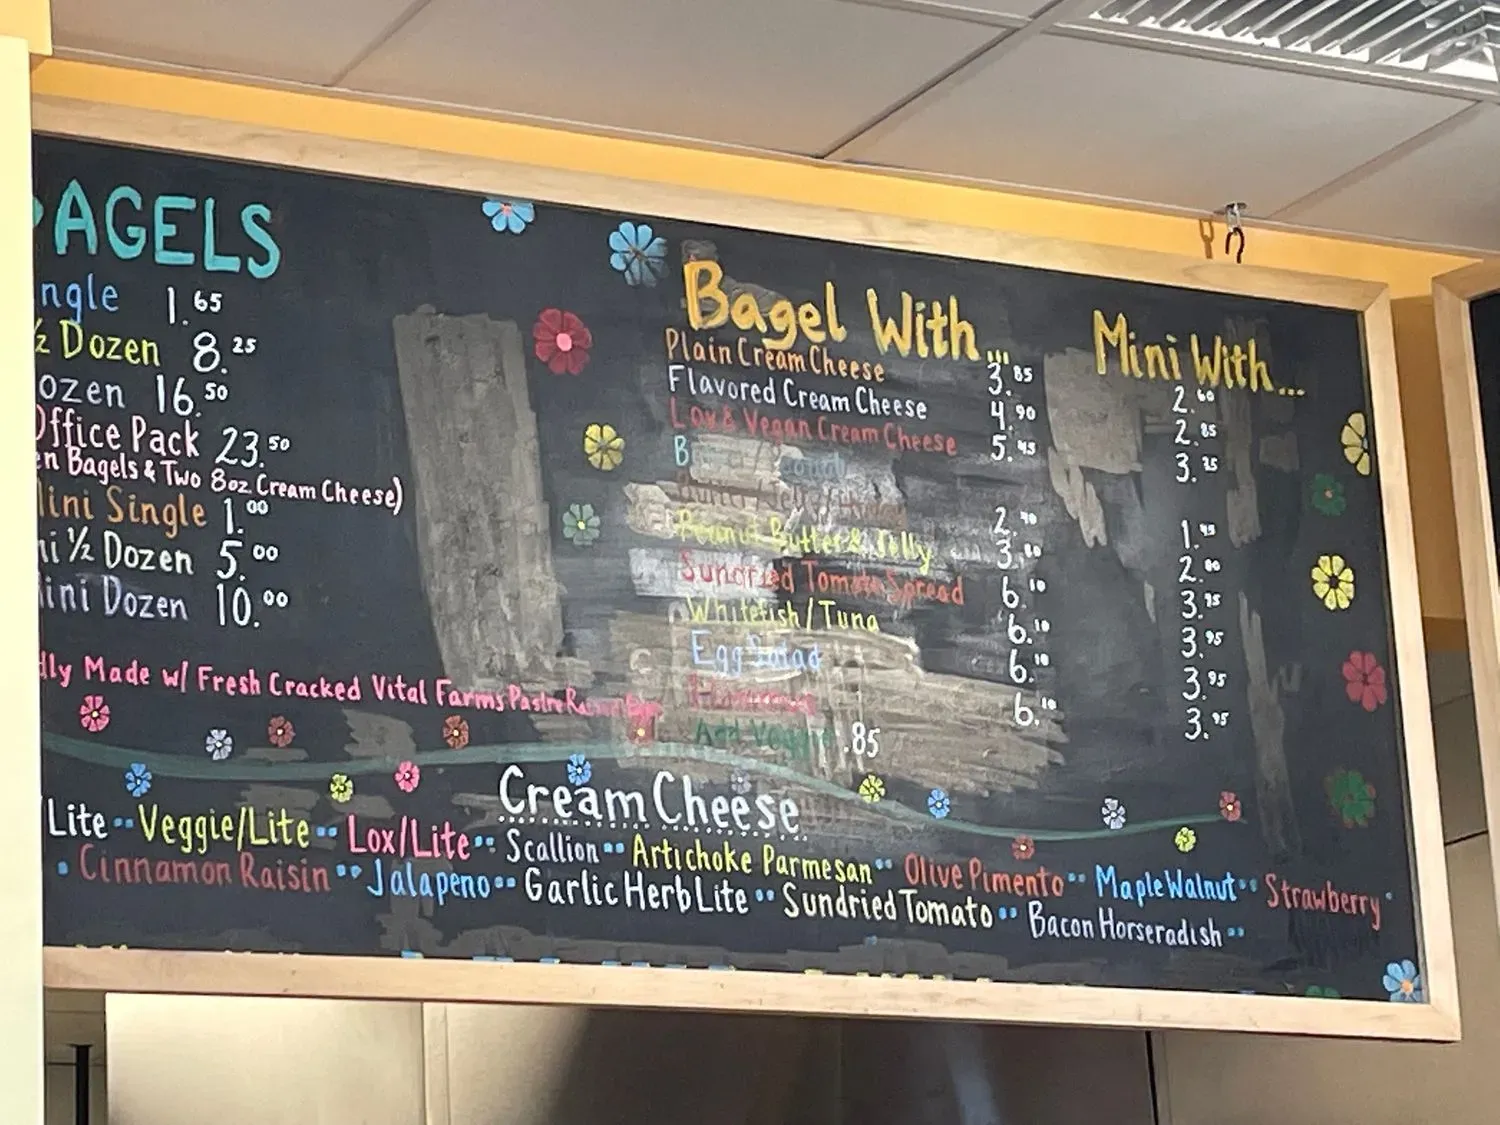 BAGELS
ngle 1.65
½ Dozen 8.25
ozen 16.50
Office Pack 23.50
en Bagels & Two 8oz Cream Cheese)
Mini Single 1.00
ni ½ Dozen 5.00
Mini Dozen 10.00
dly Made w/ Fresh Cracked Vital Farms Pasture Raised
Bagel With... Mini With...
Plain Cream Cheese 3.85 2.60
Flavored Cream Cheese 4.90 2.85
Lox & Vegan Cream Cheese 5.45 3.25
2.70 1.45
Peanut Butter & Jelly 3.80 2.80
Sundried Tomato Spread 6.10 3.95
Whitefish/Tuna 6.10 3.95
Egg Salad 6.10 3.95
Hummus 6.10 3.95
Add Veggie .85
Cream Cheese
/Lite Veggie/Lite Lox/Lite Scallion Artichoke Parmesan Olive Pimento Maple Walnut Strawberry
Cinnamon Raisin Jalapeno Garlic Herb Lite Sundried Tomato Bacon Horseradish